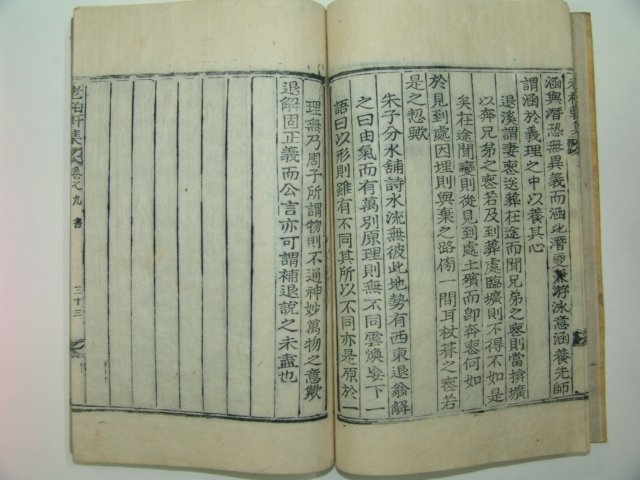 涵與潛恐無異義而涵比潛更兼游泳意涵養先師
謂涵於義理之中以養其心
退溪謂妻喪送葬在途而聞兄弟之喪則當捨壙
以奔兄弟之喪若及到葬處臨壙則不得不如是
矣在途聞變則從見到處土殯而卽奔喪何如
於見到處因埋則與棄之路傍一間耳杖朞之喪若
是之恝歟
朱子分水舖詩水流無彼此地勢有西東退翁解
之曰由氣而有萬別原理則無不同雲煥妄下一
語曰以形則雖有不同其所以不同亦是原於一
理無乃周子所謂物則不通神妙萬物之意歟
退解固正義而公言亦可謂補退說之未盡也
老柏軒集 卷之九 書 三十三